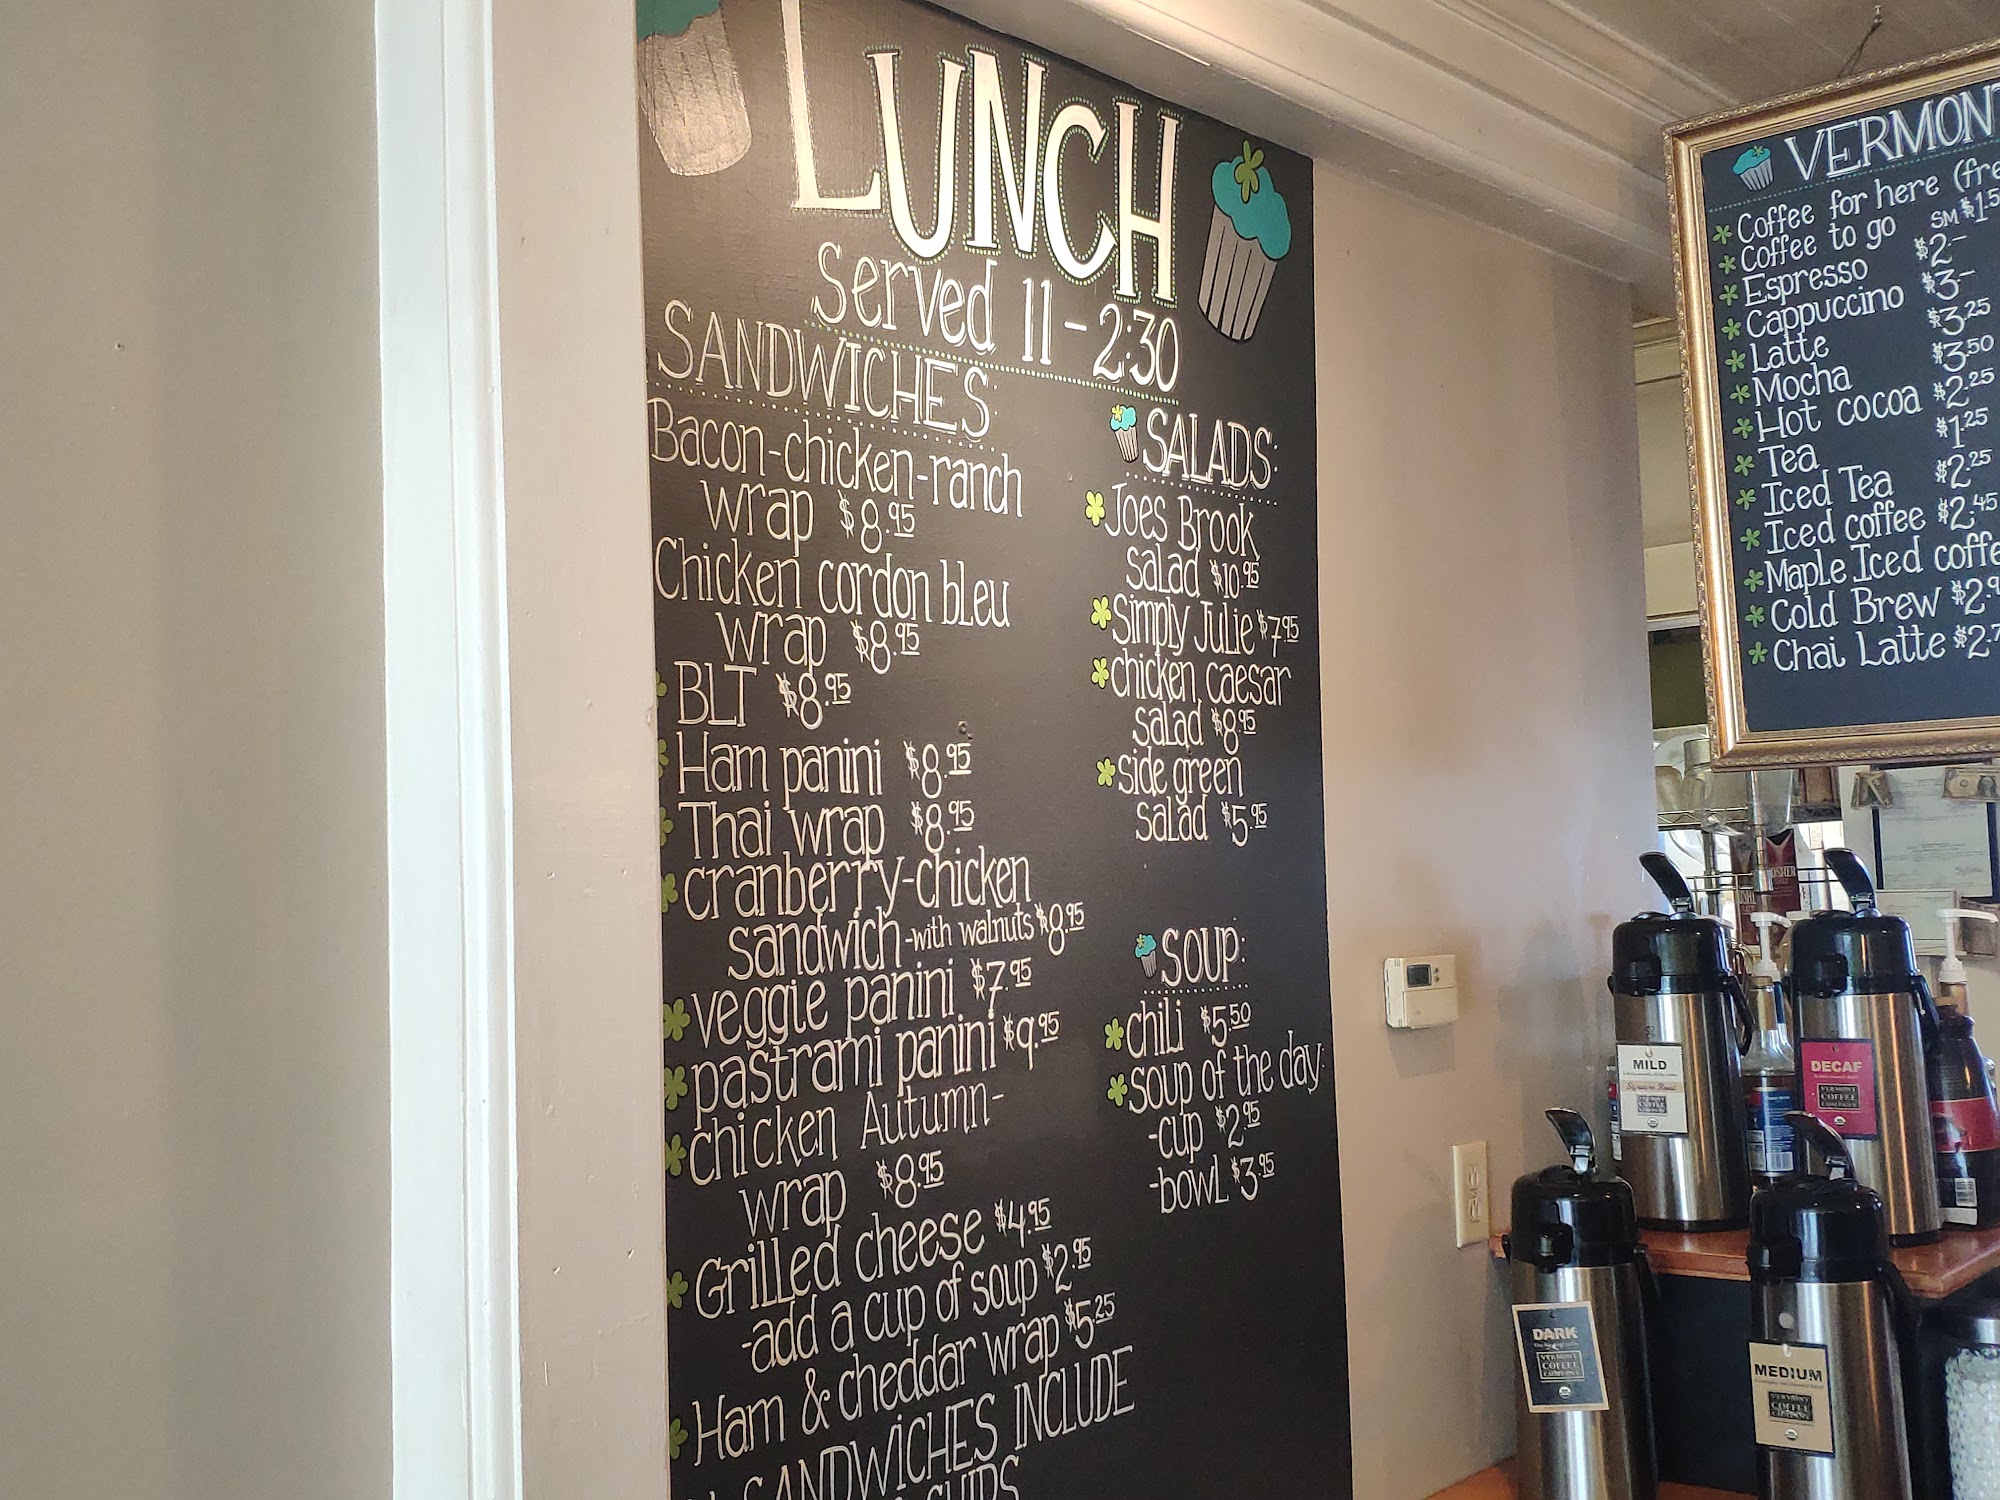 LUNCH
Served 11-2:30
SANDWICHES:
Bacon-chicken-ranch
wrap $8.95
Chicken cordon bleu
wrap $8.95
BLT $8.95
Ham panini $8.95
Thai wrap $8.95
cranberry-chicken
sandwich-with walnuts $8.95
veggie panini $7.95
pastrami panini $9.95
chicken Autumn-
wrap $8.95
Grilled cheese $4.95
-add a cup of soup $2.95
Ham & cheddar wrap $5.25
SANDWICHES INCLUDE
CHIPS
SALADS:
Joes Brook
salad $10.95
Simply Julie $7.95
chicken caesar
salad $8.95
side green
salad $5.95
SOUP:
chili $5.50
soup of the day:
-cup $2.95
-bowl $3.95
VERMONT
Coffee for here (fre
Coffee to go SM $1.5
Espresso $2-
Cappuccino $3-
Latte $3.25
Mocha $3.50
Hot cocoa $2.25
Tea $1.25
Iced Tea $2.25
Iced coffee $2.45
Maple Iced coffe
Cold Brew $2.9
Chai Latte $2.7
MILD
Signature Roast
VERMONT
COFFEE
COMPANY
DECAF
VERMONT
COFFEE
COMPANY
DARK
VERMONT
COFFEE
COMPANY
MEDIUM
VERMONT
COFFEE
COMPANY